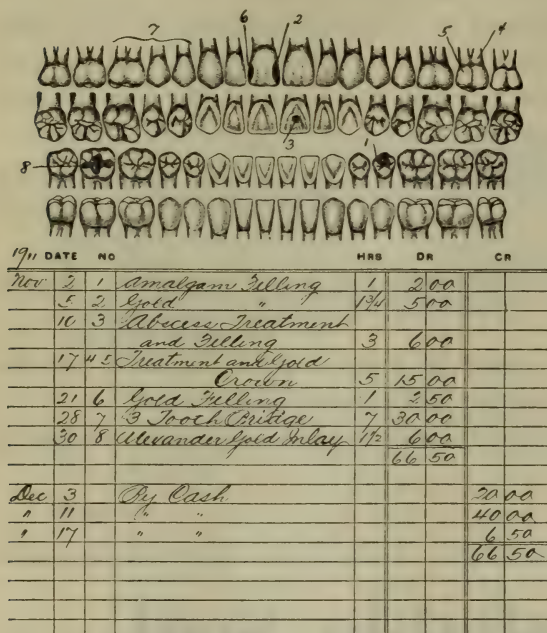 7 6 2 5 4
3 1
8
1911 DATE NO HRS DR CR
Nov 2 1 Amalgam Filling 1 2 00
5 2 Gold " 1 3/4 5 00
10 3 Abscess Treatment
and Filling 3 6 00
17 4 5 Treatment and Gold
Crown 5 15 00
21 6 Gold Filling 1 2 50
28 7 3 Tooth Bridge 7 30 00
30 8 Alexander Gold Inlay 1 1/2 6 00
66 50
Dec 3 By Cash 20 00
" 11 " " 40 00
" 17 " " 6 50
66 50